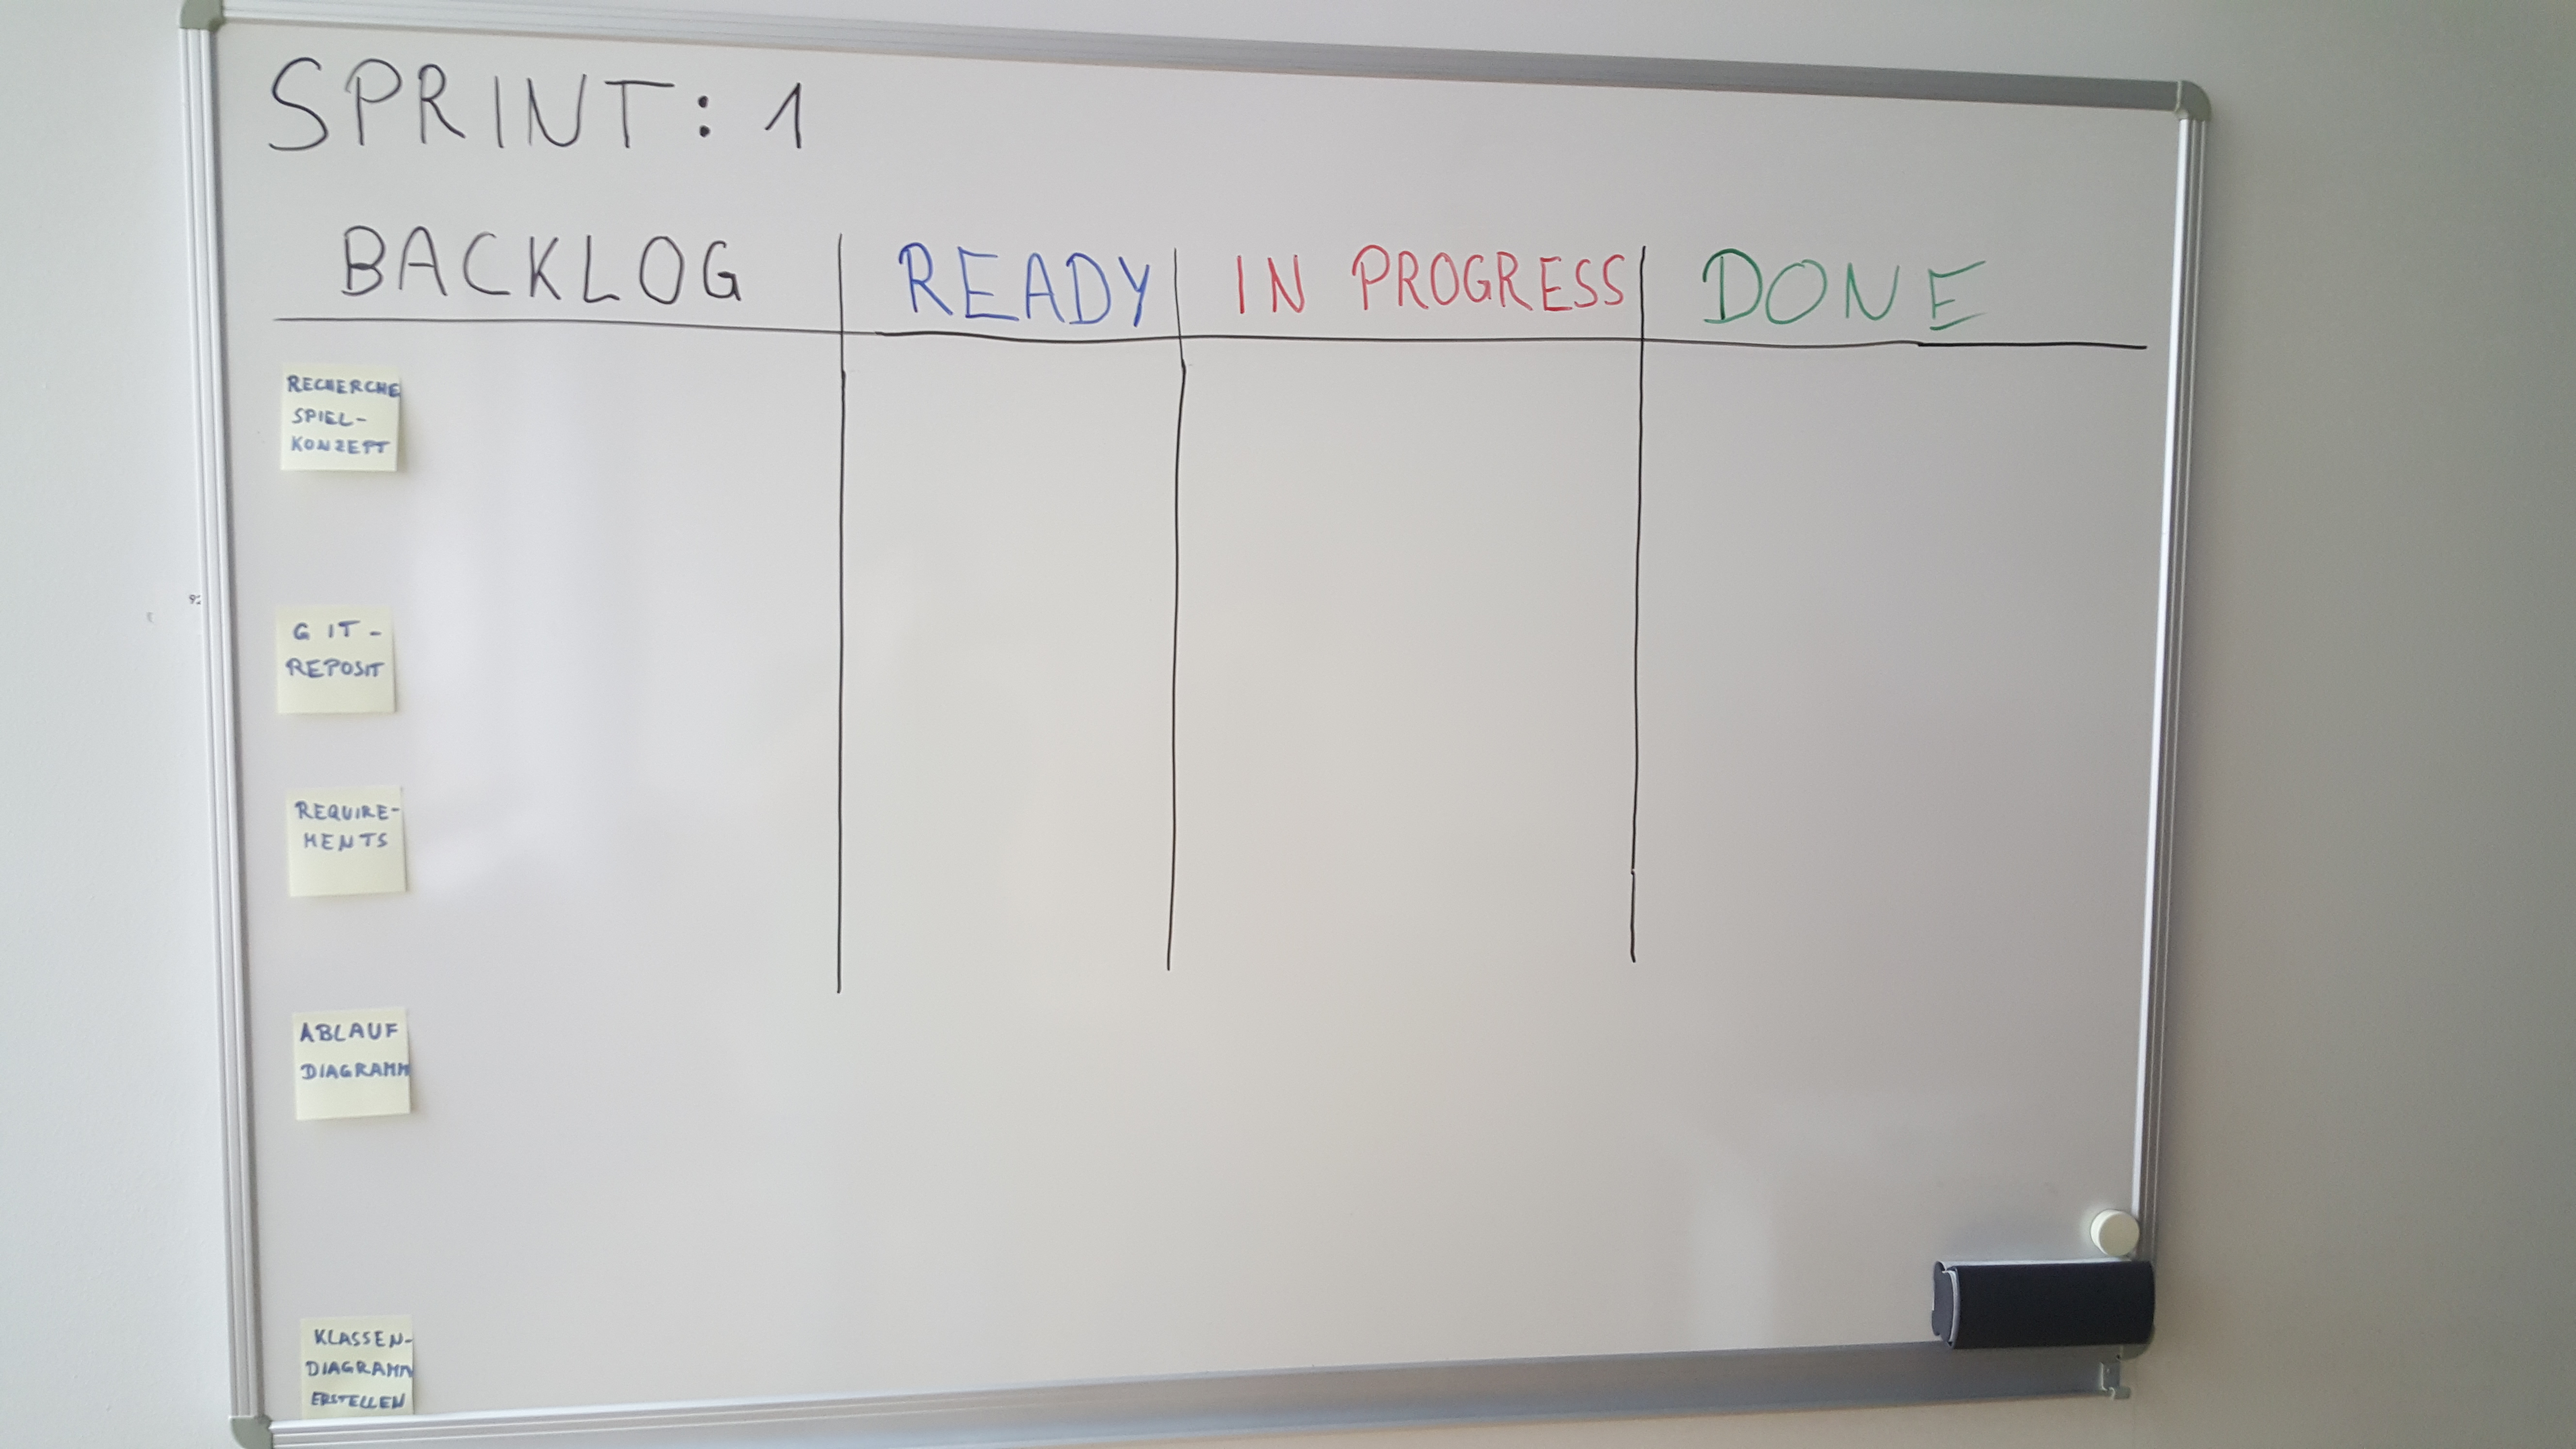 SPRINT: 1
BACKLOG READY IN PROGRESS DONE
RECHERCHE
SPIEL-
KONZEPT
GIT-
REPOSIT
REQUIRE-
MENTS
ABLAUF
DIAGRAMM
KLASSEN-
DIAGRAMM
ERSTELLEN